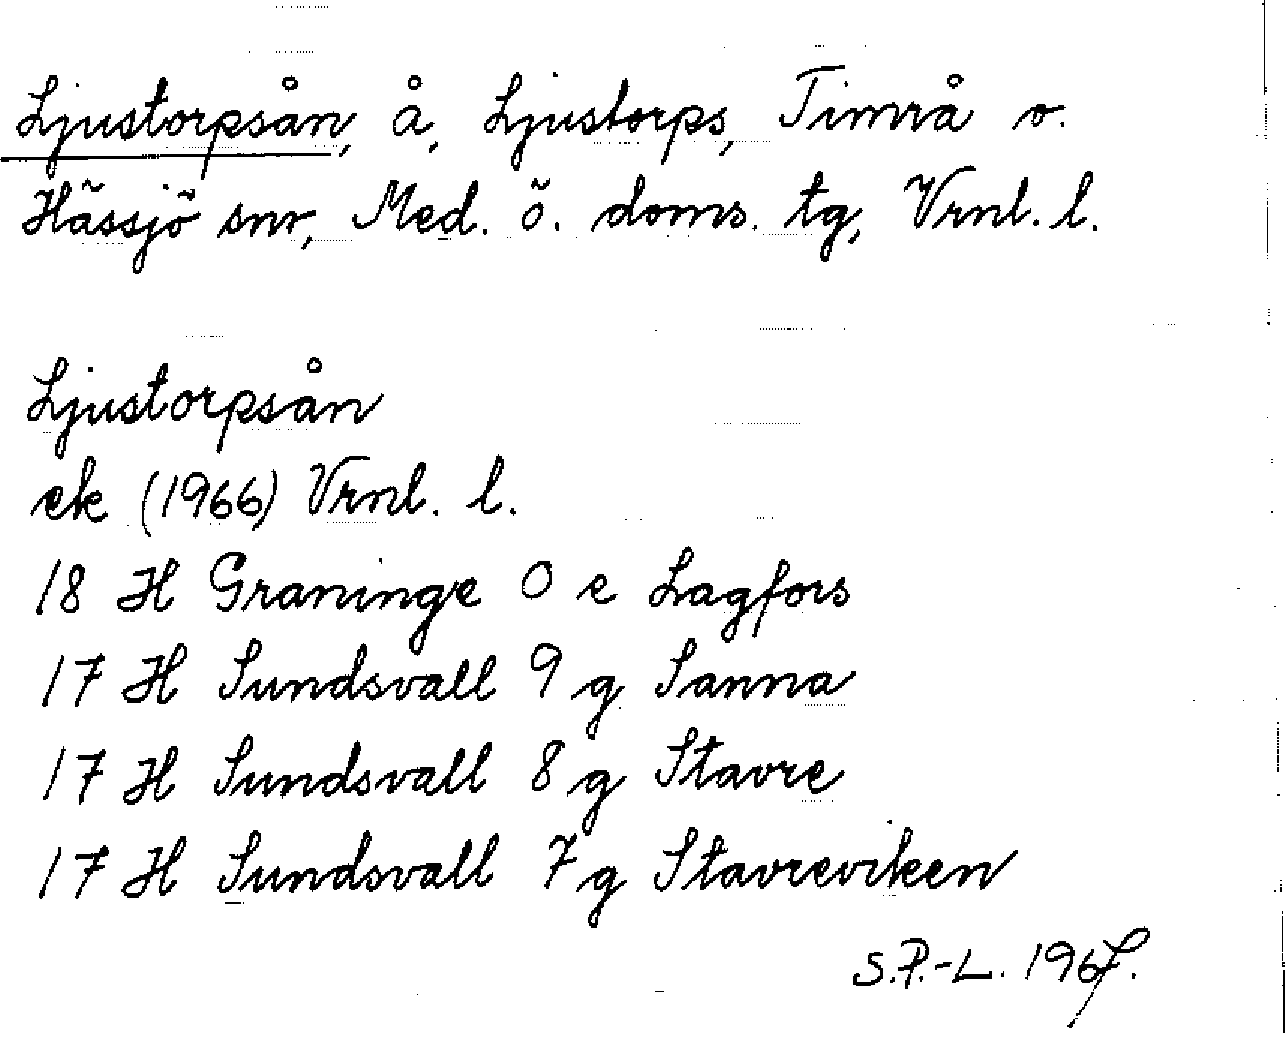 Ljustorpsån, å, Ljustorps, Timrå o.
Hässjö snr, Med. ö. doms. tg, Vrnl. l.
Ljustorpsån
ek (1966) Vrnl. l.
18 H Graninge 0 e Lagfors
17 H Sundsvall 9 g Sanna
17 H Sundsvall 8 g Stavre
17 H Sundsvall 7 g Stavreviken
S.P.-L. 1967.